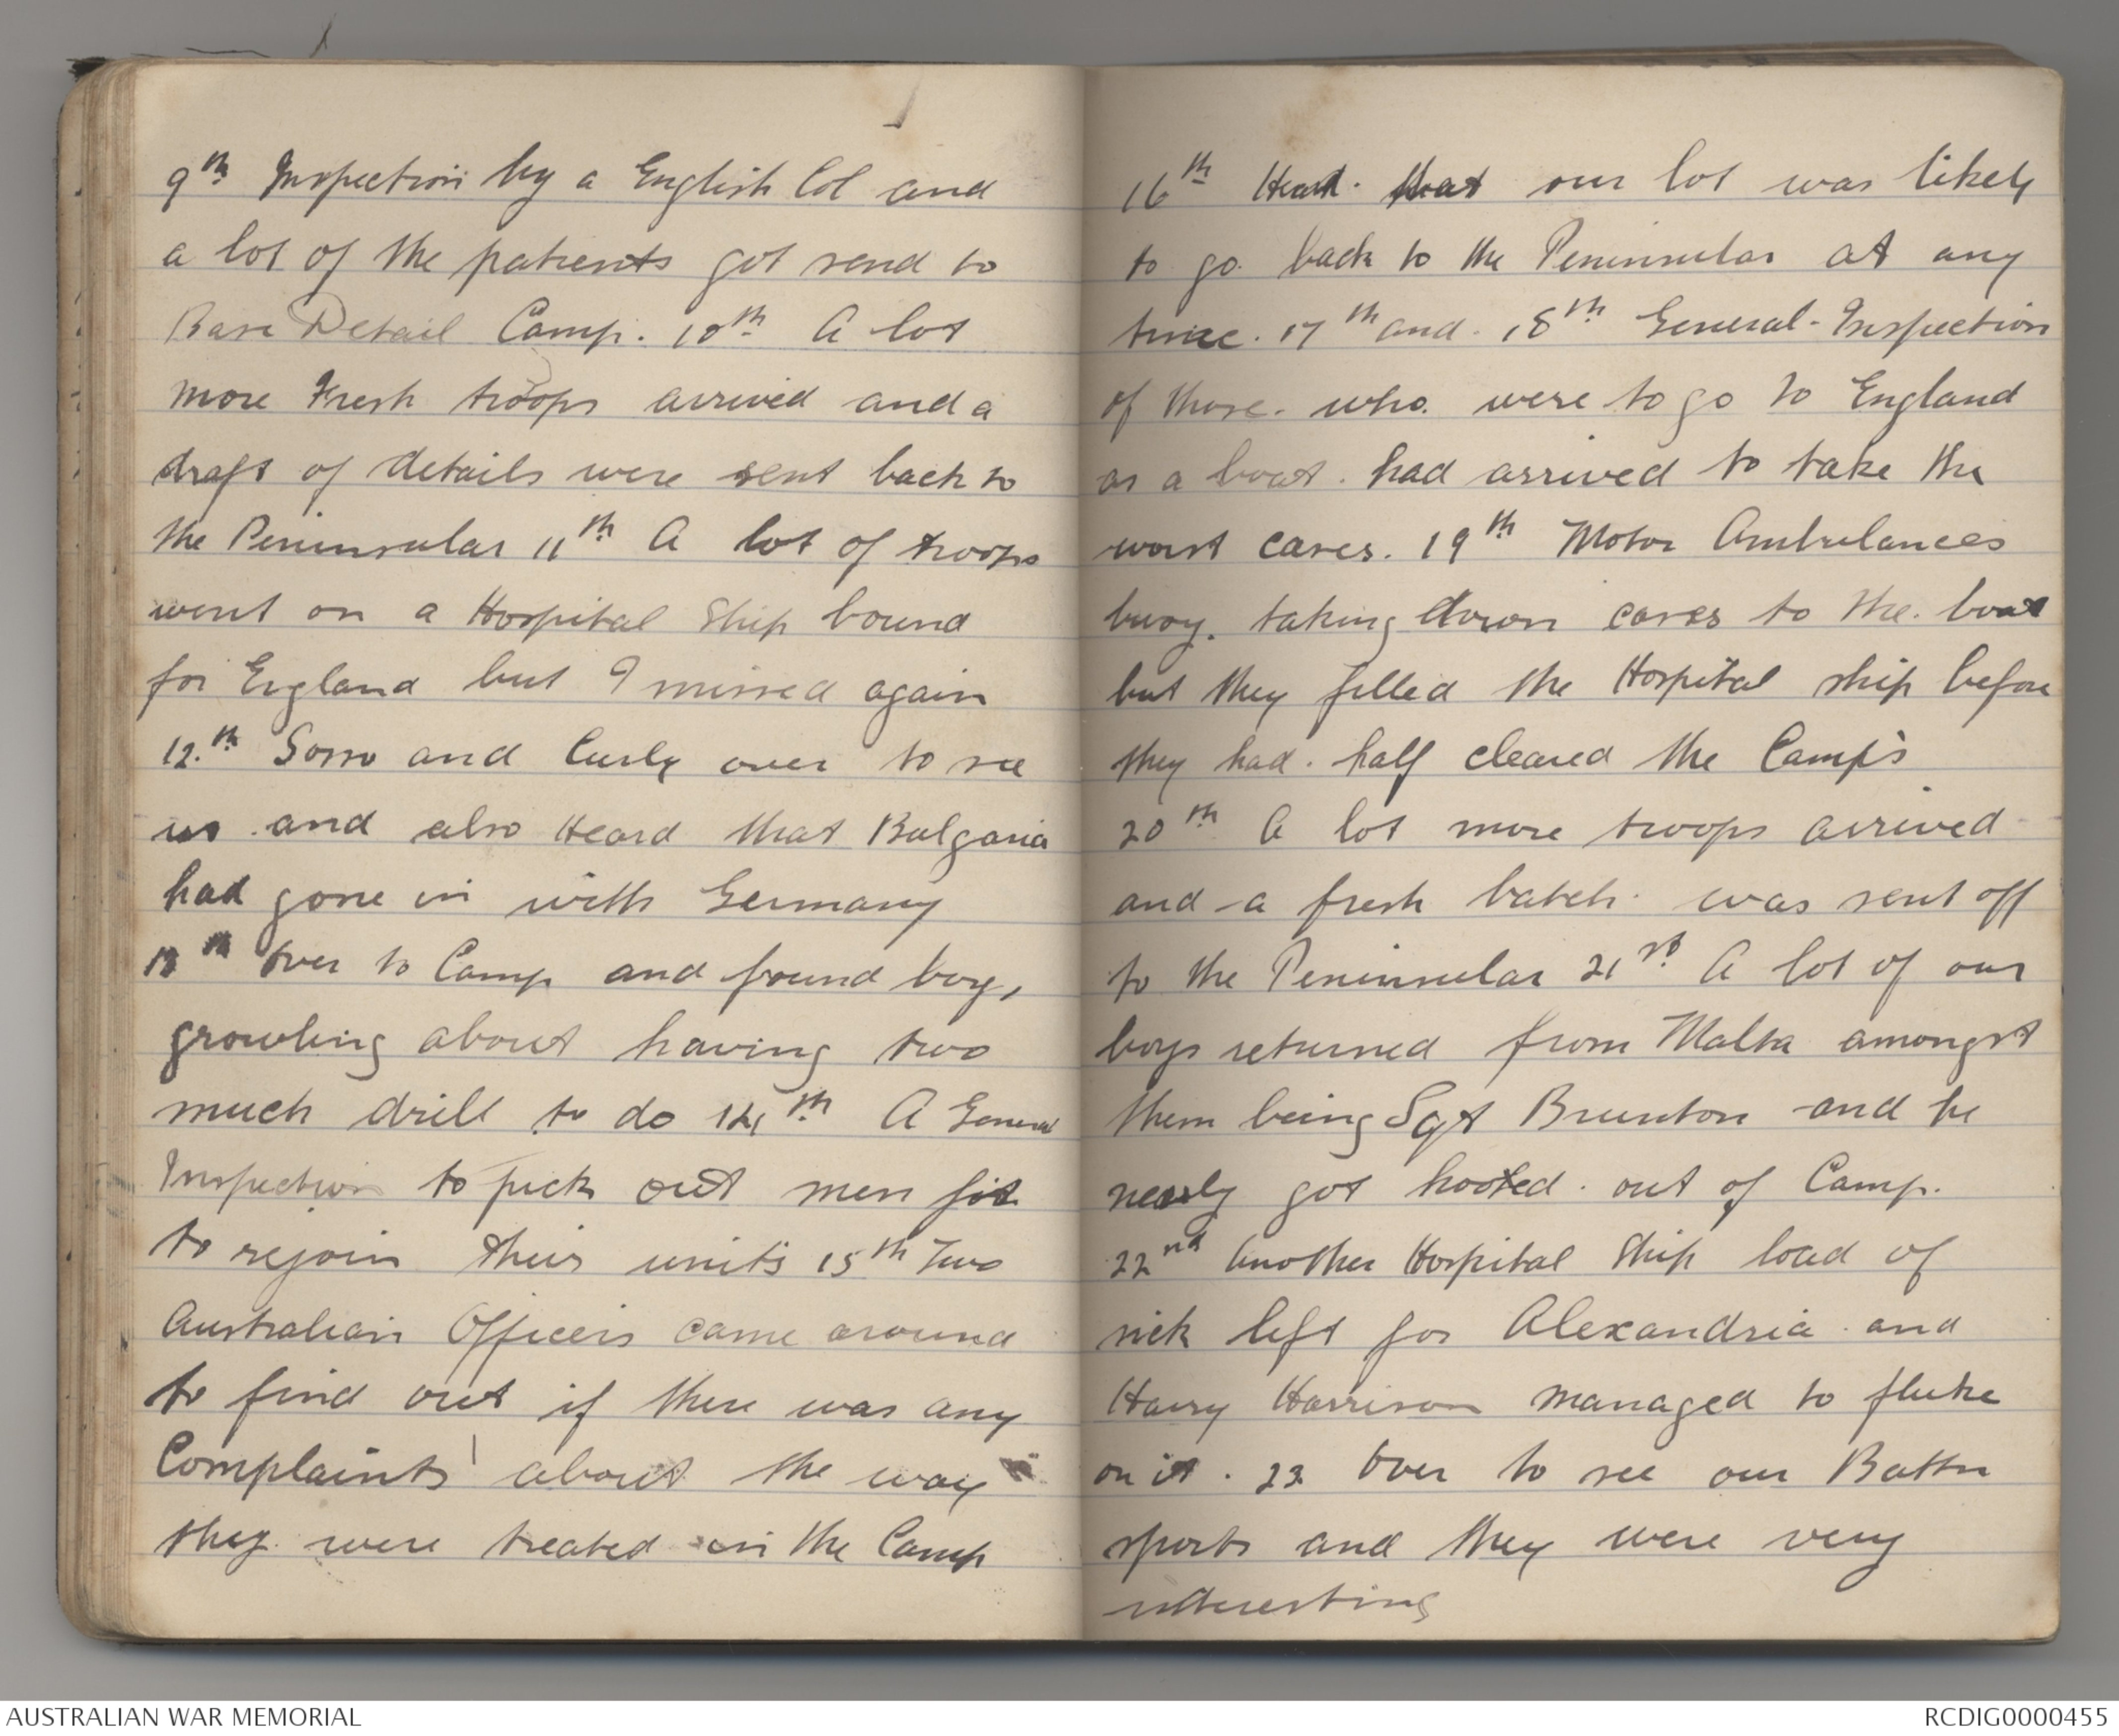 9th Inspection by a English Col and
a lot of the patients got send to
Base Detail Camp. 10th A lot
more Fresh troops arrived and a
draft of details were sent back to
the Peninsular 11th A lot of troops
went on a Hospital Ship bound
for England but I missed again
12.th Sorro and Curly over to see
us and also Heard that Bulgaria
had gone in with Germany
13th Over to Camp and found boys,
growling about having two
much drill to do 14th A General
Inspection to pick out men fit
to rejoin their units 15th Two
Australian Officers came around
to find out if there was any
Complaints about the way
they were treated in the Camp
16th Heard that our lot was likely
to go back to the Peninsular at any
time. 17th and 18th General Inspection
of those who were to go to England
as a boat had arrived to take the
worst cases. 19th Motor Ambulances
busy. taking down cases to the boat
but they filled the Hospital ship before
they had half cleared the Camp's
20th A lot more troops arrived
and a fresh batch was sent off
to the Peninsular 21st A lot of our
boys returned from Malta amongst
them being Sgt Brunton and he
nearly got hooted out of Camp.
22nd Another Hospital Ship load of
sick left for Alexandria and
Harry Harrison managed to fluke
on it. 23 Over to see our Battn
sports and they were very
interesting
AUSTRALIAN WAR MEMORIAL
RCDIG0000455